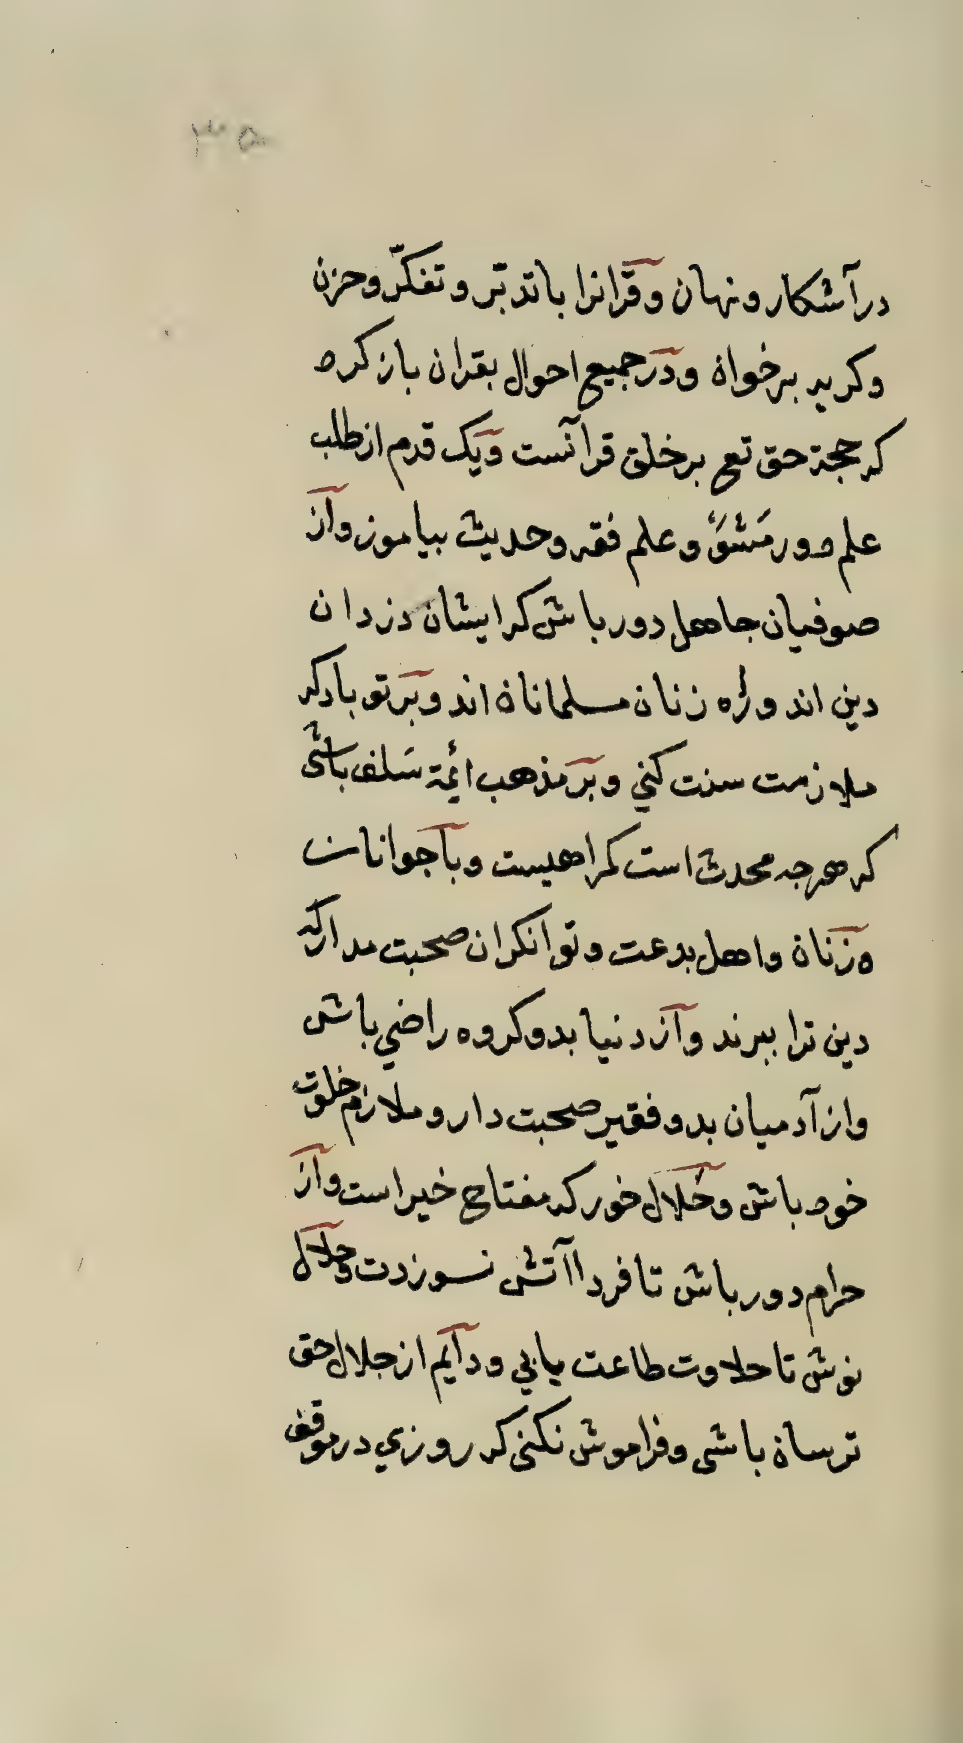 ۳۵
در آشکار و نهان و قرانرا با تدبّر و تفکّر و حزن
و کریه برخوان و در جمیع احوال بقران باز کرد
که حجة حق تع بر خلق قرآنست و یک قدم از طلب
علم دور مَشَوْ و علم فقه و حدیث بیاموز و از
صوفیان جاهل دور باش که ایشان دزدان
دین اند و راه زنان مسلمانان اند و بر تو باد که
ملازمت سنت کني و بر مذهب ائمة سَلف باشی
که هر جه محدث است کمراهیست و با جوانان
و زنان و اهل بدعت و توانکران صحبت مدار که
دین ترا ببرند و از دنیا بدو کروه راضي باش
و از آدمیان بدو فقیر صحبت دار و ملازم خلوت
خود باش و حَلال خور که مفتاح خیر است و از
حرام دور باش تا فردا آتش نسوزدت و حلال
نوش تا حلاوت طاعت یابي و دآیم از جلال حق
ترسان باشی و فراموش نکنی که روزي در موقف